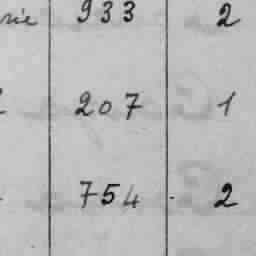 rie 933 2
207 1
754 2